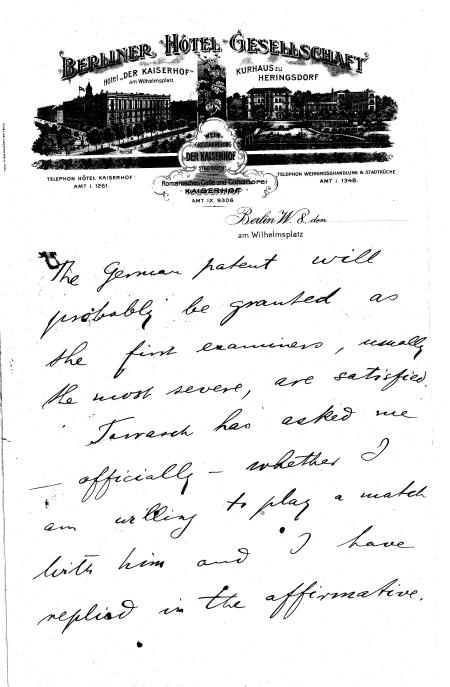 BERLINER HÔTEL-GESELLSCHAFT
Hotel „DER KAISERHOF"
am Wilhelmsplatz
KURHAUS ZU
HERINGSDORF
WEIN-
GROSSHANDLUNG
DER KAISERHOF
STADTKÜCHE
TELEPHON HÔTEL KAISERHOF:
AMT I. 1261.
TELEPHON WEINGROSSHANDLUNG & STADTKÜCHE
AMT I. 1348.
Romanisches Café und Conditorei
KAISERHOF
AMT IX. 9306.
Berlin W. 8, den
am Wilhelmsplatz
The German patent will
probably be granted as
the first examiners, usually
the most severe, are satisfied.
Tarrasch has asked me
– officially – whether I
am willing to play a match
with him and I have
replied in the affirmative.